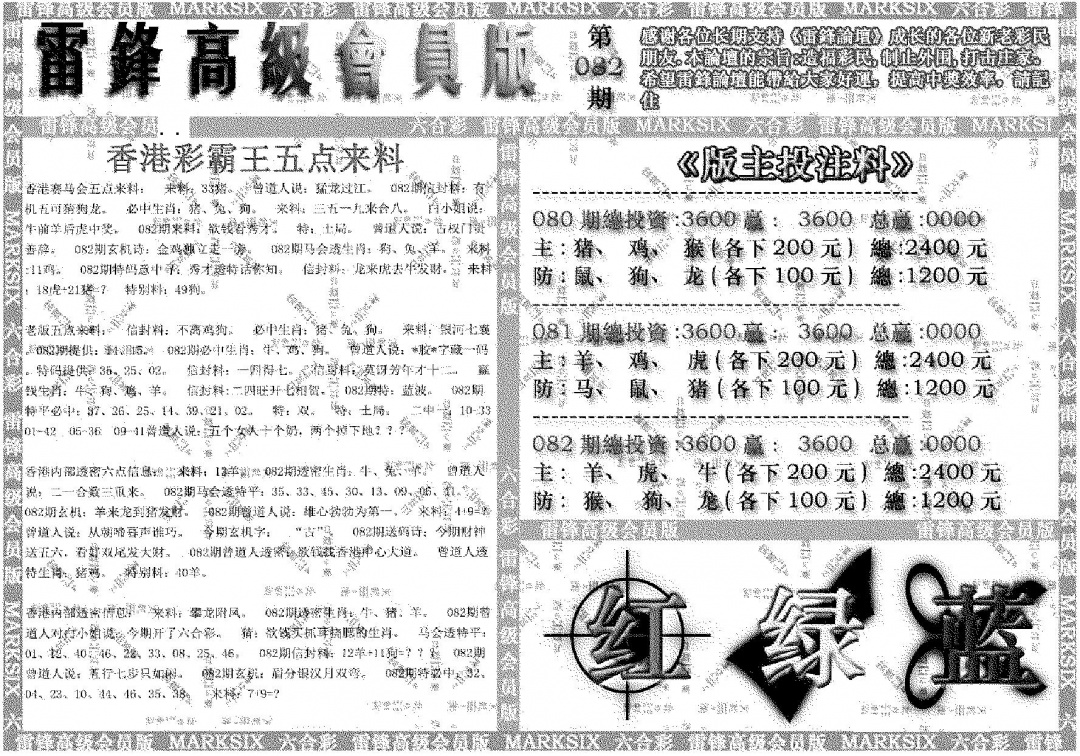 雷锋高级会员版 MARKSIX 六合彩 雷锋高级会员版 MARKSIX 六合彩
雷鋒高級會員版
第
082
期
感谢各位长期支持《雷鋒論壇》成长的各位新老彩民
朋友,本論壇的宗旨:造福彩民,制止外国,打击庄家。
希望雷鋒論壇能帶給大家好運,提高中獎效率,請記
住
雷锋高级会员
六合彩 雷锋高级会员版 MARKSIX 六合彩 雷锋高级会员版 MARKSIX
香港彩霸王五点来料
香港赛马会五点来料: 来料:33猪。 曾道人说:猛龙过江。 082期信封料:有
机五可猜狗龙。 必中生肖:猪、兔、狗。 来料:三五一九来合八。 白小姐说:
牛前羊后虎中奖。 082期来料:欲钱看秀才。 特:土局。 曾道人说:古权门贵
善薛。 082期玄机诗:金鸡独立走一湾。 082期马会透生肖:狗、兔、羊。 来料
:11鸡。 082期特码意中寻:秀才透特话你知。 信封料:龙来虎去牛发财。 来料
:18虎+21猪=? 特别料:49狗。
老版五点来料: 信封料:不离鸡狗。 必中生肖:猪、兔、狗。 来料:银河七襄
。082期提供:44.15。 082期必中生肖:牛、鸡、狗。 曾道人说:*胶*字藏一码
。特码提供:35、25、02。 信封料:一四得七。 信息料:莫讶芳年才十二。 赢
钱生肖:牛、狗、鸡、羊。 信封料:二四旺开七相贺。 082期特:蓝波。 082期
特平必中:37、26、25、14、39、21、02。 特:双。 特:土局。 二中一:10-33
01-42 05-36 09-41曾道人说:五个女人十个奶,两个掉下地???
香港内部透密六点信息: 来料:12羊。 082期透密生肖:牛、兔、羊。 曾道人
说:二一合数三重来。 082期马会透特平:35、33、45、30、13、09、06、41。
082期玄机:羊来龙到猪发财。 082期曾道人说:雄心勃勃为第一。 来料:4+9=?
曾道人说:从朝啼暮声谁巧。 今期玄机字: “吉” 082期送码诗:今期财神
送五六,看好双尾发大财。 082期曾道人透密:欲钱载香港中心大道。 曾道人透
特生肖:猪鸡。 特别料:40羊。
香港内部透密信息: 来料:攀龙附凤。 082期透密生肖:牛、猪、羊。 082期曾
道人对白小姐说:今期开了六合彩。 猜:欲钱买抓耳挠腮的生肖。 马会透特平:
01、12、40、46、22、33、08、25、46。 082期信封料:12羊+11狗=??? 082期
曾道人说:五行七步只如闲。 082期玄机:眉分银汉月双弯。 082期特必中:32、
04、23、10、44、46、35、38。 来料:7+9=?
《版主投注料》
080 期總投資:3600 赢: 3600 总赢:0000
主:猪、 鸡、 猴(各下 200 元) 總:2400 元
防:鼠、 狗、 龙(各下 100 元) 總:1200 元
081 期總投資:3600 赢: 3600 总赢:0000
主:羊、 鸡、 虎(各下 200 元) 總:2400 元
防:马、 鼠、 猪(各下 100 元) 總:1200 元
082 期總投資:3600 赢: 3600 总赢:0000
主: 羊、 虎、 牛(各下 200 元) 總:2400 元
防: 猴、 狗、 龙(各下 100 元) 總:1200 元
雷锋高级会员版 雷锋高级会员版
红 绿 蓝
雷锋高级会员版 MARKSIX 六合彩 雷锋高级会员版 MARKSIX 六合彩 雷锋高级会员版 MARKSIX 六合彩 雷锋